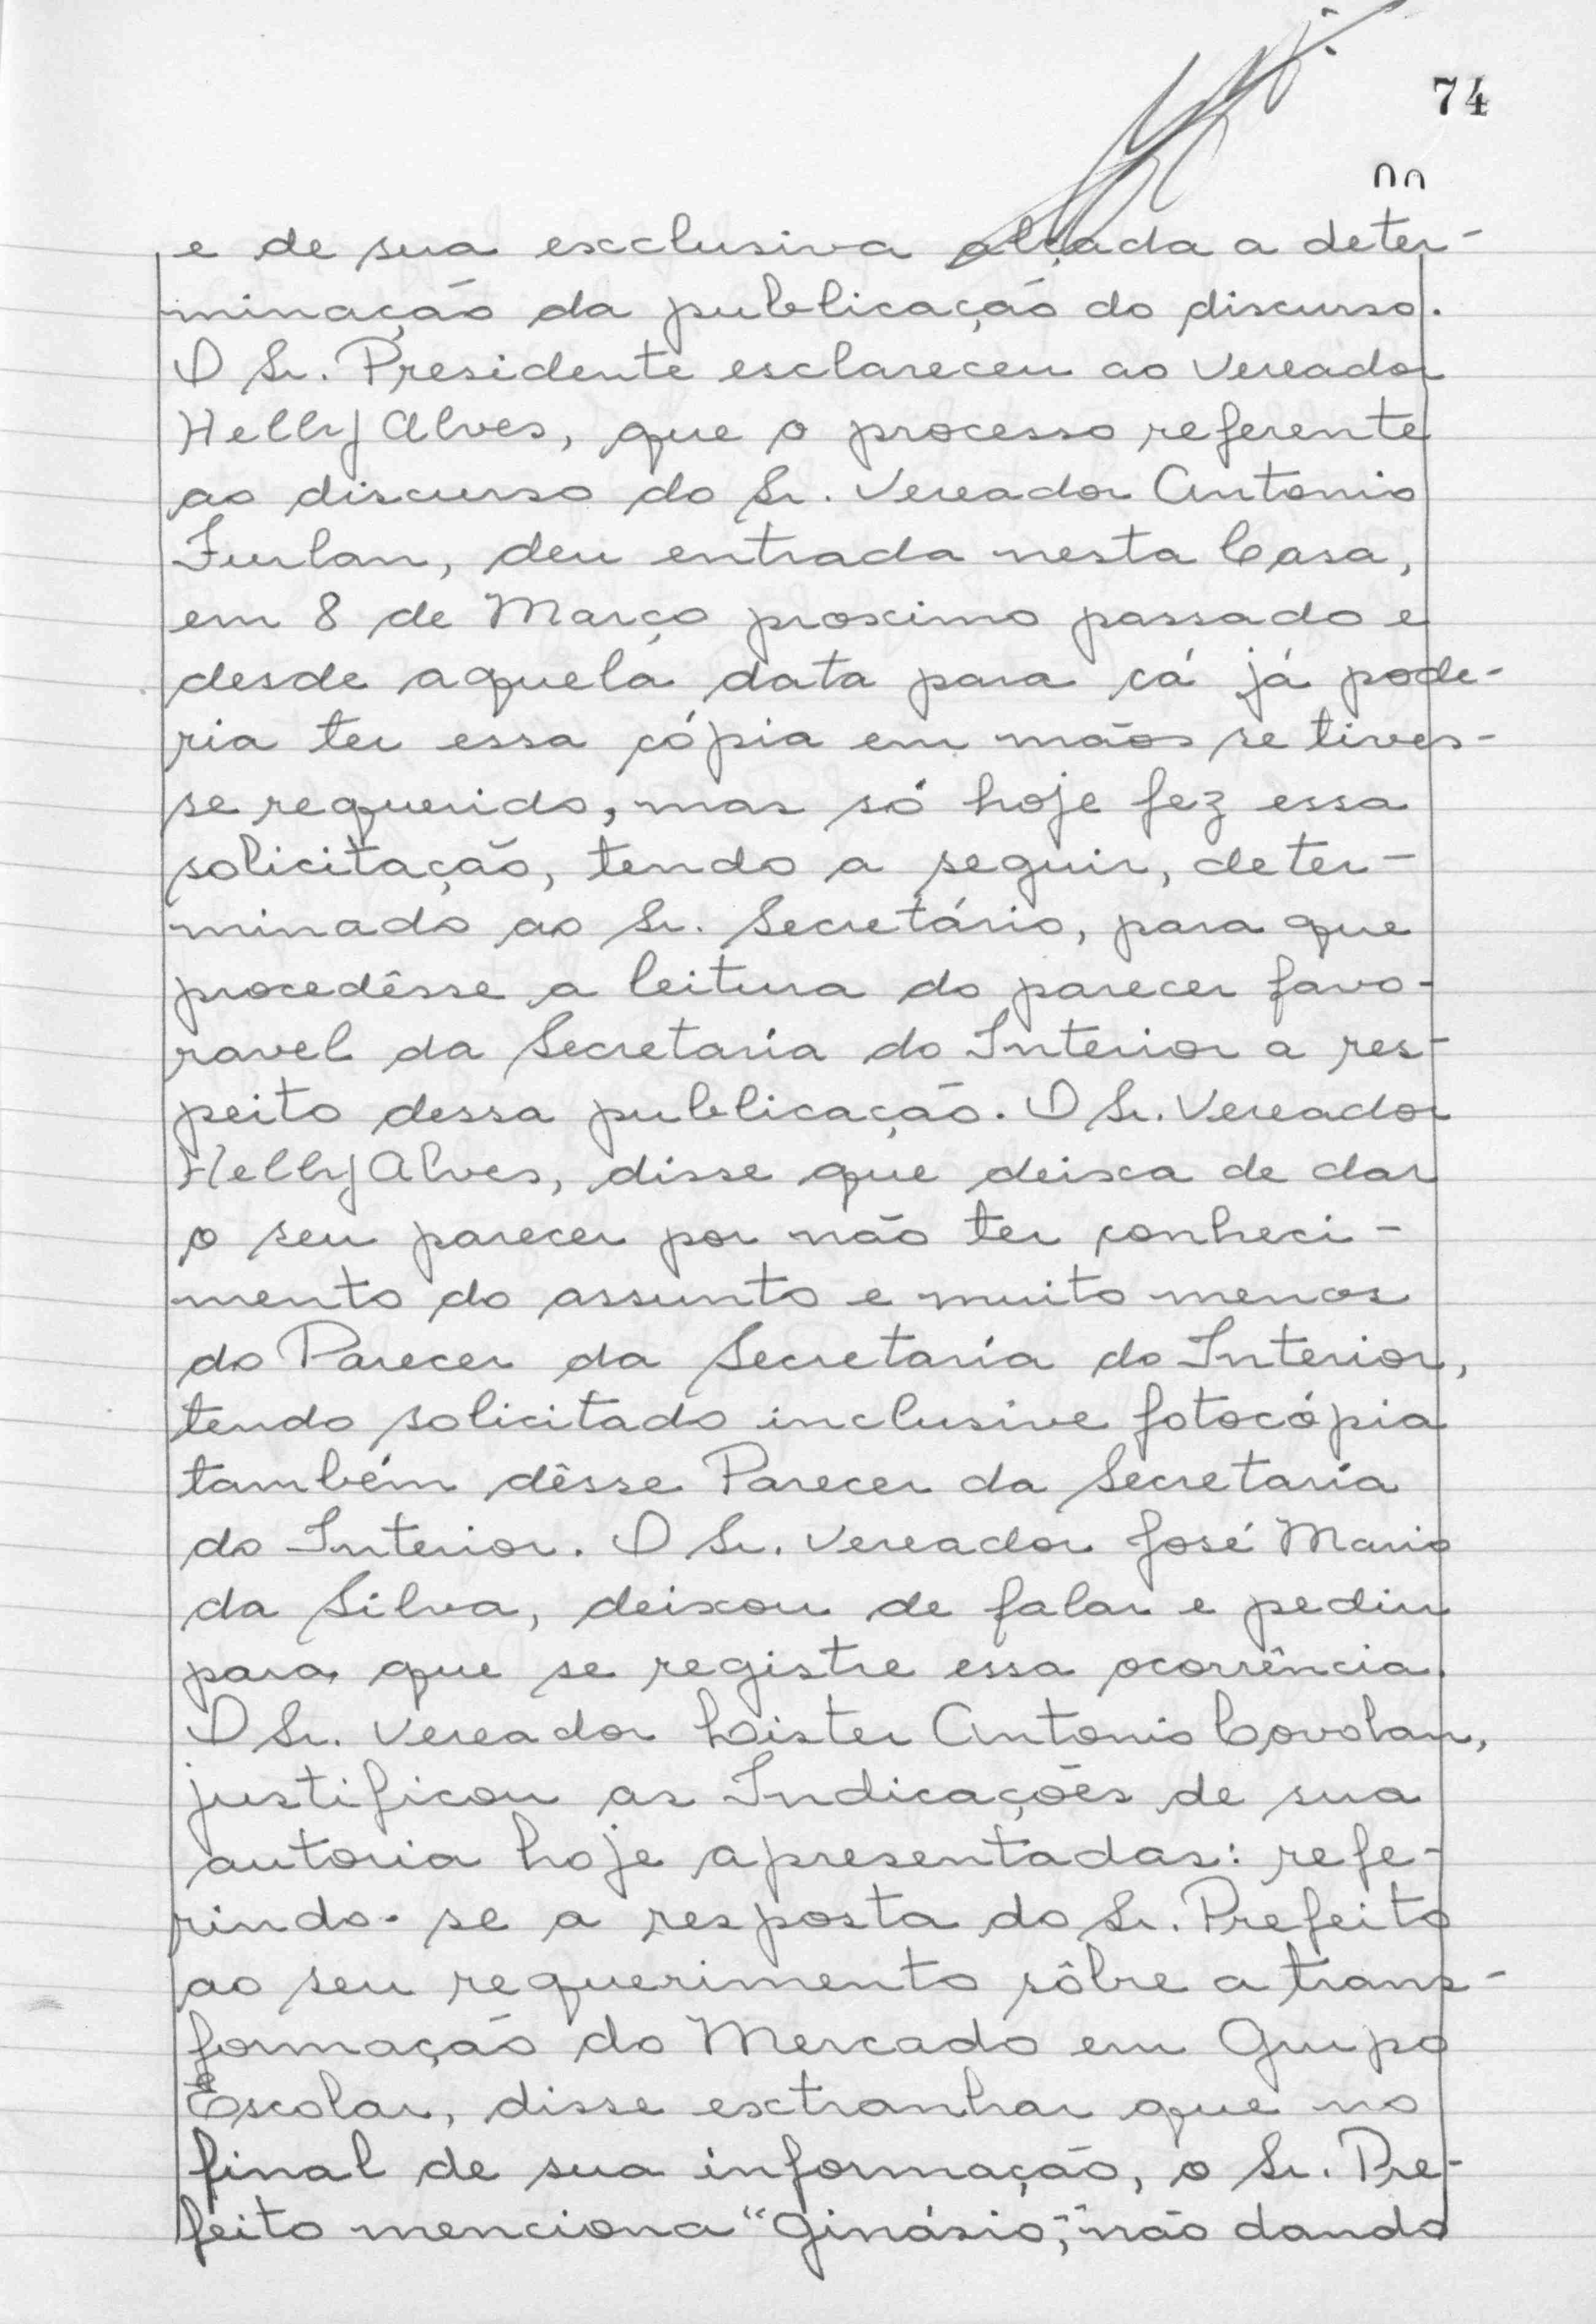 74
e de sua exclusiva alçada a deter-
minação da publicação do discurso.
O Sr. Presidente esclareceu ao Vereador
Helly Alves, que o processo referente
ao discurso do Sr. Vereador Antonio
Furlan, deu entrada nesta Casa,
em 8 de Março proximo passado e
desde aquela data para cá já pode-
ria ter essa cópia em mãos se tives-
se requerido, mas só hoje fez essa
solicitação, tendo a seguir, deter-
minado ao Sr. Secretário, para que
procedêsse a leitura do parecer favo-
ravel da Secretaria do Interior a res-
peito dessa publicação. O Sr. Vereador
Helly Alves, disse que deixa de dar
o seu parecer por não ter conheci-
mento do assunto e muito menos
do Parecer da Secretaria do Interior,
tendo solicitado inclusive fotocópia
também dêsse Parecer da Secretaria
do Interior. O Sr. Vereador José Mario
da Silva, deixou de falar e pediu
para que se registre essa ocorrência.
O Sr. Vereador Lister Antonio Covolan,
justificou as Indicações de sua
autoria hoje apresentadas: refe-
rindo-se a resposta do Sr. Prefeito
ao seu requerimento sôbre a trans-
formação do Mercado em Grupo
Escolar, disse extranhar que no
final de sua informação, o Sr. Pre-
feito menciona "Ginásio", não dando